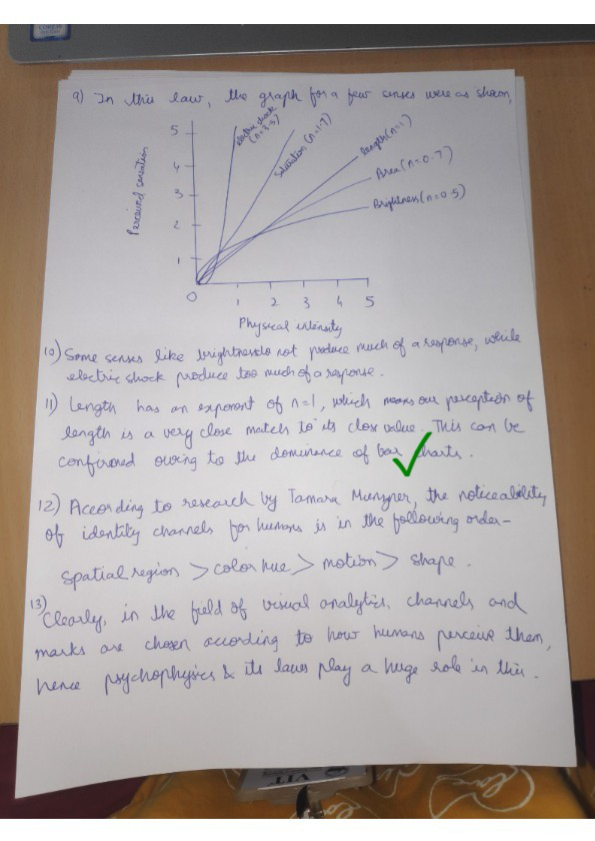 9) In this law, the graph for a few senses were as shown,
5
4
3
2
1
0
1 2 3 4 5
Perceived sensation
Physical intensity
electric shock (n=3.5)
Saturation (n=1.7)
Length (n=1)
Area (n=0.7)
Brightness (n=0.5)
10) Some senses like brightness do not produce much of a response, while
electric shock produce too much of a response.
11) Length has an exponent of n=1, which means our perception of
length is a very close match to its close value. This can be
confirmed owing to the dominance of bar charts.
12) According to research by Tamara Munzner, the noticeability
of identity channels for humans is in the following order-
spatial region > color hue > motion > shape.
13) Clearly, in the field of visual analytics, channels and
marks are chosen according to how humans perceive them,
hence psychophysics & its laws play a huge role in this.
VIT